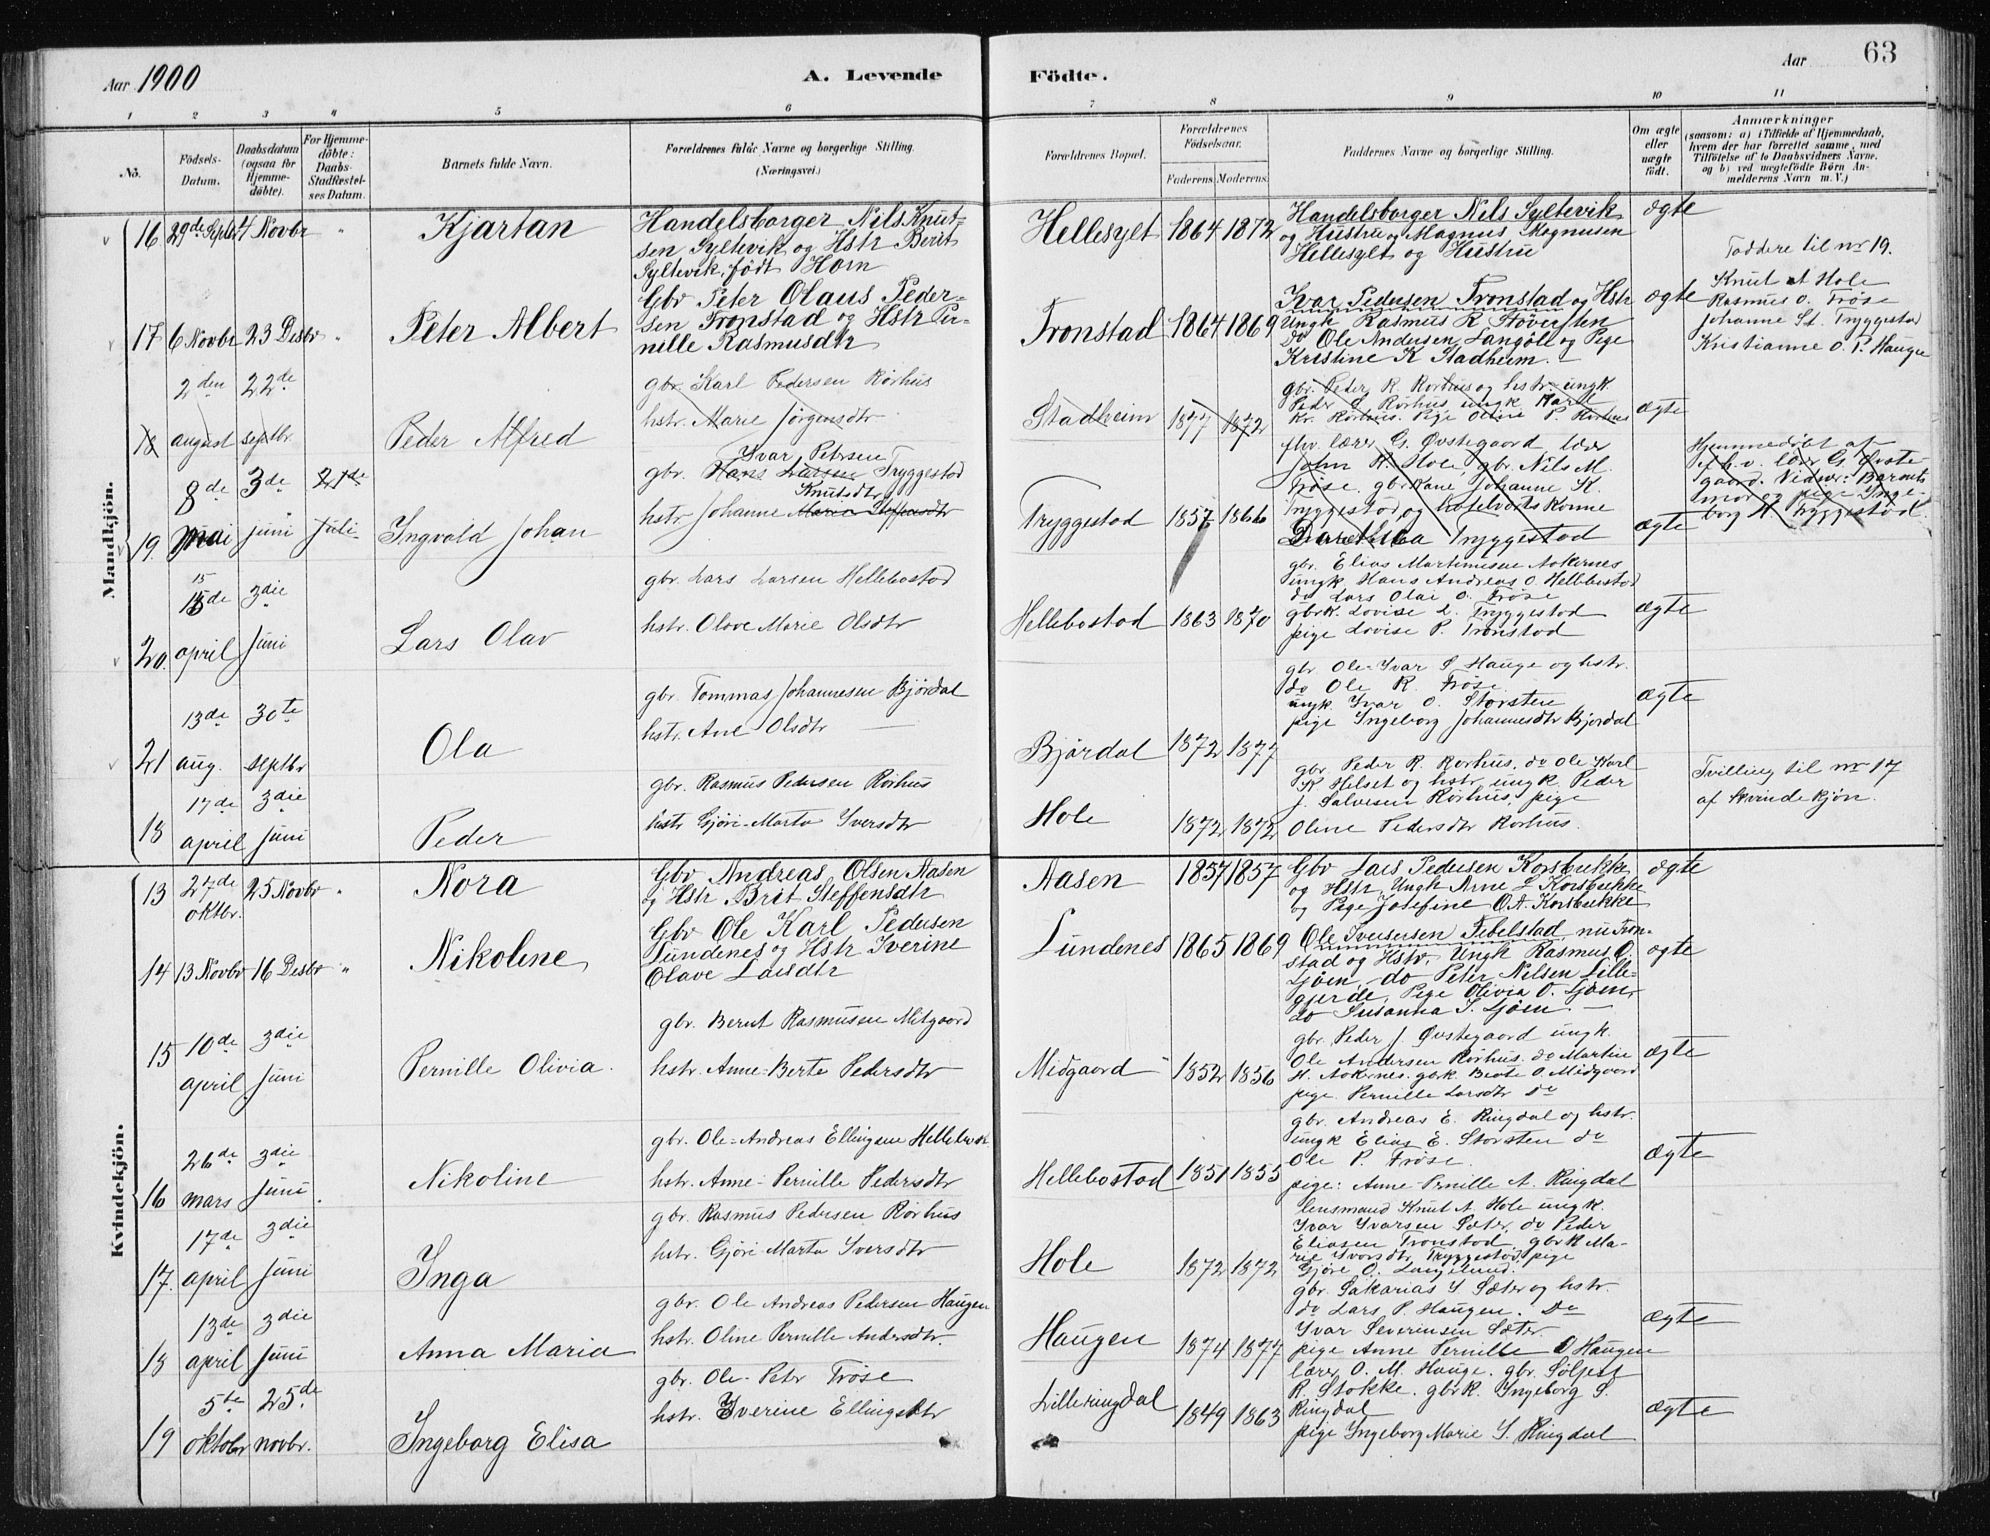 Aar 1900
A. Levende
Födte.
Aar
63
1 2 3 4 5 6 7 8 9 10 11
No.
Födsels-
Datum.
Daabsdatum
(ogsaa for
Hjemme-
döbte).
For Hjemme-
döbte:
Daabs-
Stadfæstel-
ses Datum.
Barnets fulde Navn.
Forældrenes fulde Navne og borgerlige Stilling.
(Næringsvei.)
Forældrenes Bopæl.
Forældrenes
Födselsaar.
Faderens.
Moderens.
Faddernes Navne og borgerlige Stilling.
Om ægte
eller
uægte
födt.
Anmærkninger
(saasom: a) i Tilfælde af Hjemmedaab,
hvem der har forrettet samme, med
Tilföielse af to Daabsvidners Navne,
og b) ved uægtefödte Børn An-
melderens Navn m. V.)
Mandkjön.
16 29de Septb 4 Novbr "
Kjartan
Handelsborger Nils Knut-
sen Syltevik og Hstr Berit
Syltevik, født Horn
Hellesylt 1864 1872
Handelsborger Nils Syltevik
og Hustru, Magnus Magnusen
Hellesylt og Hustru
ægte
Faddere til nr 19.
Knut A Hole
Rasmus O. Frøse
Johanne St. Tryggestad
Kristianne O. P. Hauge
17 6 Novbr 23 Desbr "
Peter Albert
Gbr Peter Olaus Peder-
sen Tronstad og Hstr Per-
nille Rasmusdtr
Tronstad 1864 1869
Ivar Pedersen Tronstad og Hstr
Ungk Rasmus R Støversten
do Ole Andersen Langöll og Pige
Kristine K Stadheim.
ægte
18 2den august 22de septbr.
Peder Alfred
gbr. Karl Pedersen Rørhus
hstr. Marie Jørgensdtr
Stadheim 1877 1872
gbr. Peder R. Rørhus og hstr. ungk.
Peder S Rørhus ungk Karl
Kr. Rørhus. Pige Oline P. Rørhus
ægte
19. 8de mai 3de juni 21de juli
Ingvald Johan
Ivar Petersen
gbr. Hans Larsen Tryggestad
Knutsdtr
hstr Johanne Maria Steffensdtr
Tryggestad 1857 1866
fhv. lærer G. Øvstegaard lærer
John K. Hole gbr. Nils M.
Frøse. gbrkone Johanne K.
Tryggestad og
Tryggestad
ægte
Hjemmedøbt af
f.h.v. lærer G. Øvste-
gaard. Vidner: Barnets
mor og pige Inge-
borg A Tryggestad.
20. 15de april 3die juni
15
Lars Olav
gbr. Lars Larsen Hellebostad
hstr. Olave Marie Olsdtr
Hellebostad 1863 1870
gbr. Elias Martinusen Aakernes
ungk. Hans Andreas O. Hellebostad
do Lars Olai O. Frøse
gbrk. Lovise L. Tryggestad
pige Lovise P. Tronstad
ægte
21 13de aug. 30te septbr
Ola
gbr. Tommas Johannesen Bjørdal
hstr. Ane Olsdtr
Bjørdal 1872 1877
gbr. Ole-Ivar S. Hauge og hstr.
do Ole R. Frøse.
ungk. Ivar O. Storsten
pige Ingeborg Johannesdtr Bjørdal
ægte
18 17de april 3die juni
Peder
gbr. Rasmus Pedersen Rørhus
hstr Gjøri-Marta Iversdtr
Hole 1872 1872
gbr. Peder R. Rørhus, do Ole Karl
K Helset og hstr. ungk. Peder
J. Salvesen Rørhus, pige
Oline Pedersdtr Rørhus.
Tvilling til nr 17
af Kvindekjøn.
Kvindekjön.
13 27de oktbr. 25 Novbr "
Nora
Gbr Andreas Olsen Aasen
og Hstr Brit Steffensdtr
Aasen 1857 1857
Gbr Lars Pedersen Korsbrekke
og Hstr, Ungk Arne L Korsbrekke
og Pige Josefine O.A. Korsbrekke
ægte
14 13 Novbr 16 Desbr "
Nikoline
Gbr Ole Karl Pedersen
Lundenes og Hstr Iverine
Olave Larsdtr
Lundenes 1865 1869
Ole Iversen Febelstad, nu Tron-
stad og Hstr, Ungk Rasmus O.
Ljøen, do Peter Nilsen Lille-
gjerde, Pige Olivia O. Ljøen,
do Susanna S. Ljøen
ægte
15 10de april 3die juni
Pernille Olivia.
gbr. Bernt Rasmusen Mitgaard
hstr. Anne-Berte Pedersdtr
Midgaard 1852 1856
gbr. Peder J. Øvstegaard ungk.
Ole Andersen Rørhus. do Martin
H. Aakernes. gbrk. Beate O Midgaard
pige Pernille Larsdtr do
ægte
16 26de mars 3die juni.
Nikoline
gbr. Ole-Andreas Ellingsen Hellebost
hstr. Anne-Pernille Pedersdtr
Hellebostad 1851 1855
gbr. Andreas E. Ringdal og hstr.
ungk Elias E. Storsten do
Ole P. Frøse.
pige: Anne-Pernille A. Ringdal
ægte
17. 17de april 3die juni
Inga
gbr. Rasmus Pedersen Rørhus
hstr. Gjøri-Marta Iversdtr
Hole 1872 1872
lensmand Knut A Hole ungk.
Ivar Ivarsen Sæter, do Peder
Eliasen Tronstad, gbrk Ma-
rie Ivarsdtr Tryggestad, pige
Gjøre O. Langelund.
18 13de april 3die juni
Anna Maria
gbr. Ole Andreas Pedersen Haugen
hstr. Oline Pernille Andersdtr.
Haugen 1874 1877
gbr. Sakarias I Sæter og hstr.
do Lars P. Haugen. Do
Ivar Severinsen Sæter.
pige Anne Pernille O Haugen
ægte
19 5te oktobr 25de novbr.
Ingeborg Elisa
gbr. Ole-Peter Frøse
hstr. Iverine Ellingsdtr
Lilleringdal 1849 1863
lærer O. M. Hauge. gbr. Sølfest
R. Stokke. gbrk. Ingeborg S.
Ringdal
pige Ingeborg Marie I. Ringdal
ægte